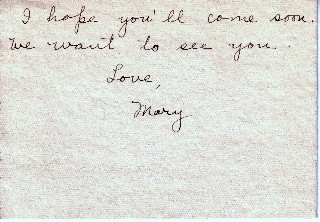 I hope you'll come soon.
We want to see you.
Love,
Mary